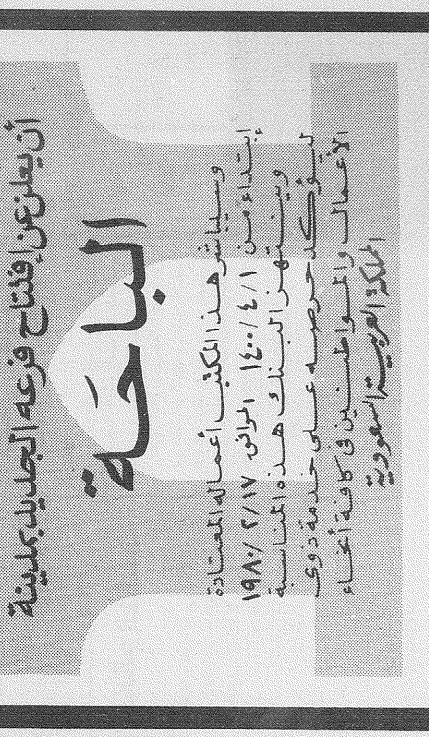 أن يعلن عن إفتتاح فرعه الجديد بمدينة
الباحَة
وسيباشر هذا المكتب أعماله المعتادة
إبتداء من ١٤٠٠/٤/١ الموافق ١٩٨٠/٢/١٧
وينتهز البنك هذه المناسبة
ليؤكد حرصه على خدمة ذوي
الأعمال والمواطنين في كافة أنحاء
المملكة العربية السعودية